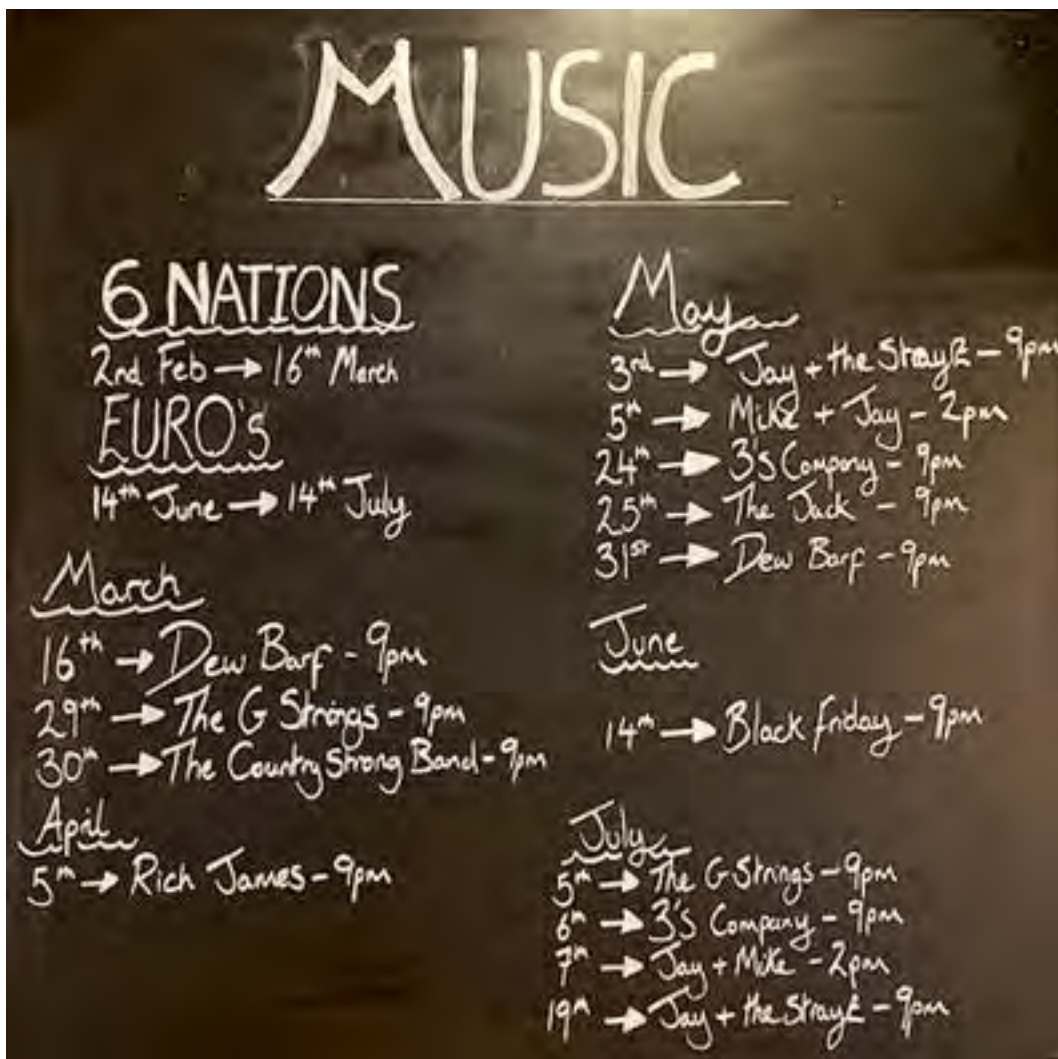 MUSIC
6 NATIONS
2nd Feb → 16th March
EURO's
14th June → 14th July
March
16th → Dew Barf - 9pm
29th → The G Strings - 9pm
30th → The Country Strong Band - 9pm
April
5th → Rich James - 9pm
May
3rd → Jay + the - 9pm
5th → Mike + Jay - 2pm
24th → 3's Company - 9pm
25th → The Jack - 9pm
31st → Dew Barf - 9pm
June
14th → Black friday - 9pm
July
5th → The G Strings - 9pm
6th → 3's Company - 9pm
7th → Jay + Mike - 2pm
19th → Jay + the - 9pm